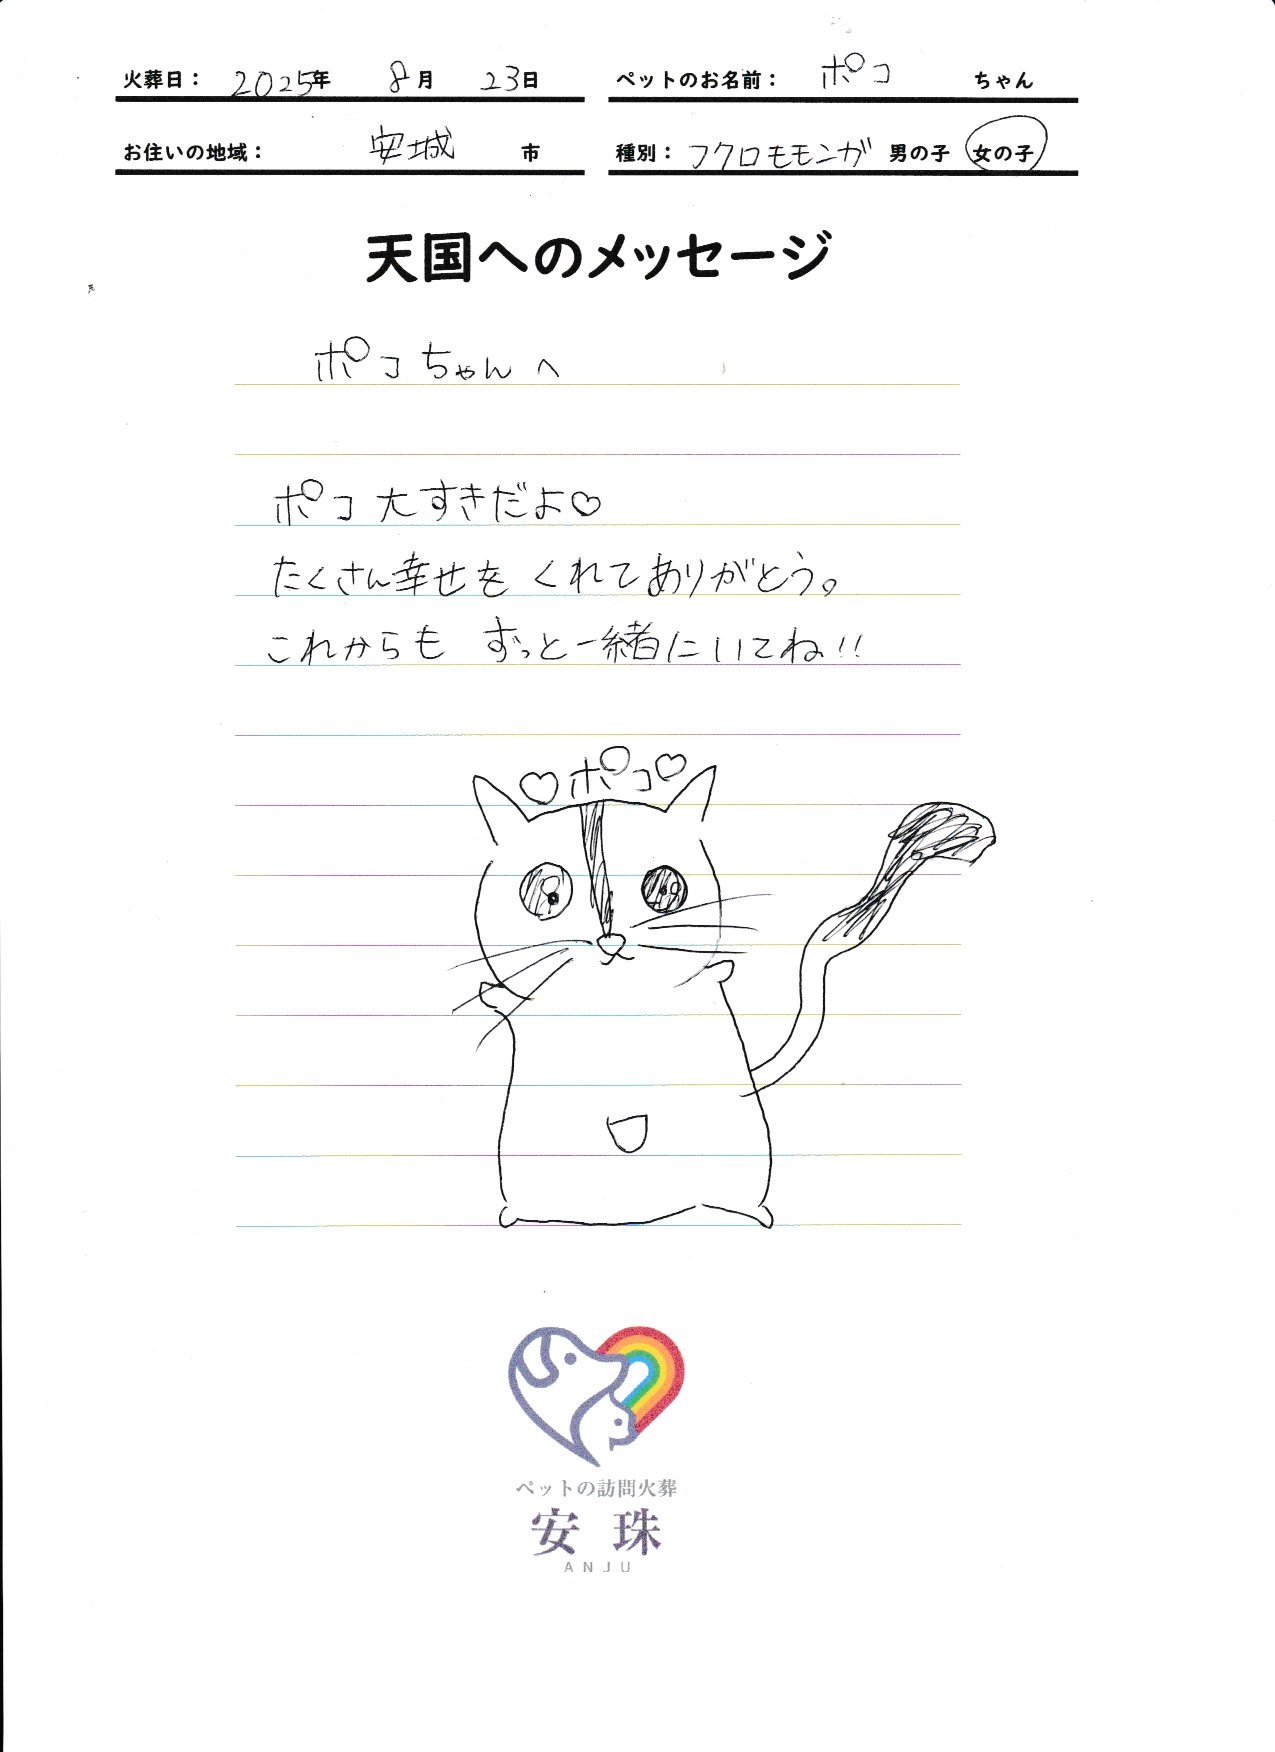 火葬日： 2025年 8月 23日
ペットのお名前： ポコ ちゃん
お住いの地域： 安城 市
種別： フクロモモンガ 男の子 女の子
天国へのメッセージ
ポコちゃんへ
ポコ 大すきだよ♡
たくさん幸せを くれてありがとう。
これからも ずっと一緒にいてね!!
♡ポコ♡
ペットの訪問火葬
安珠
ANJU